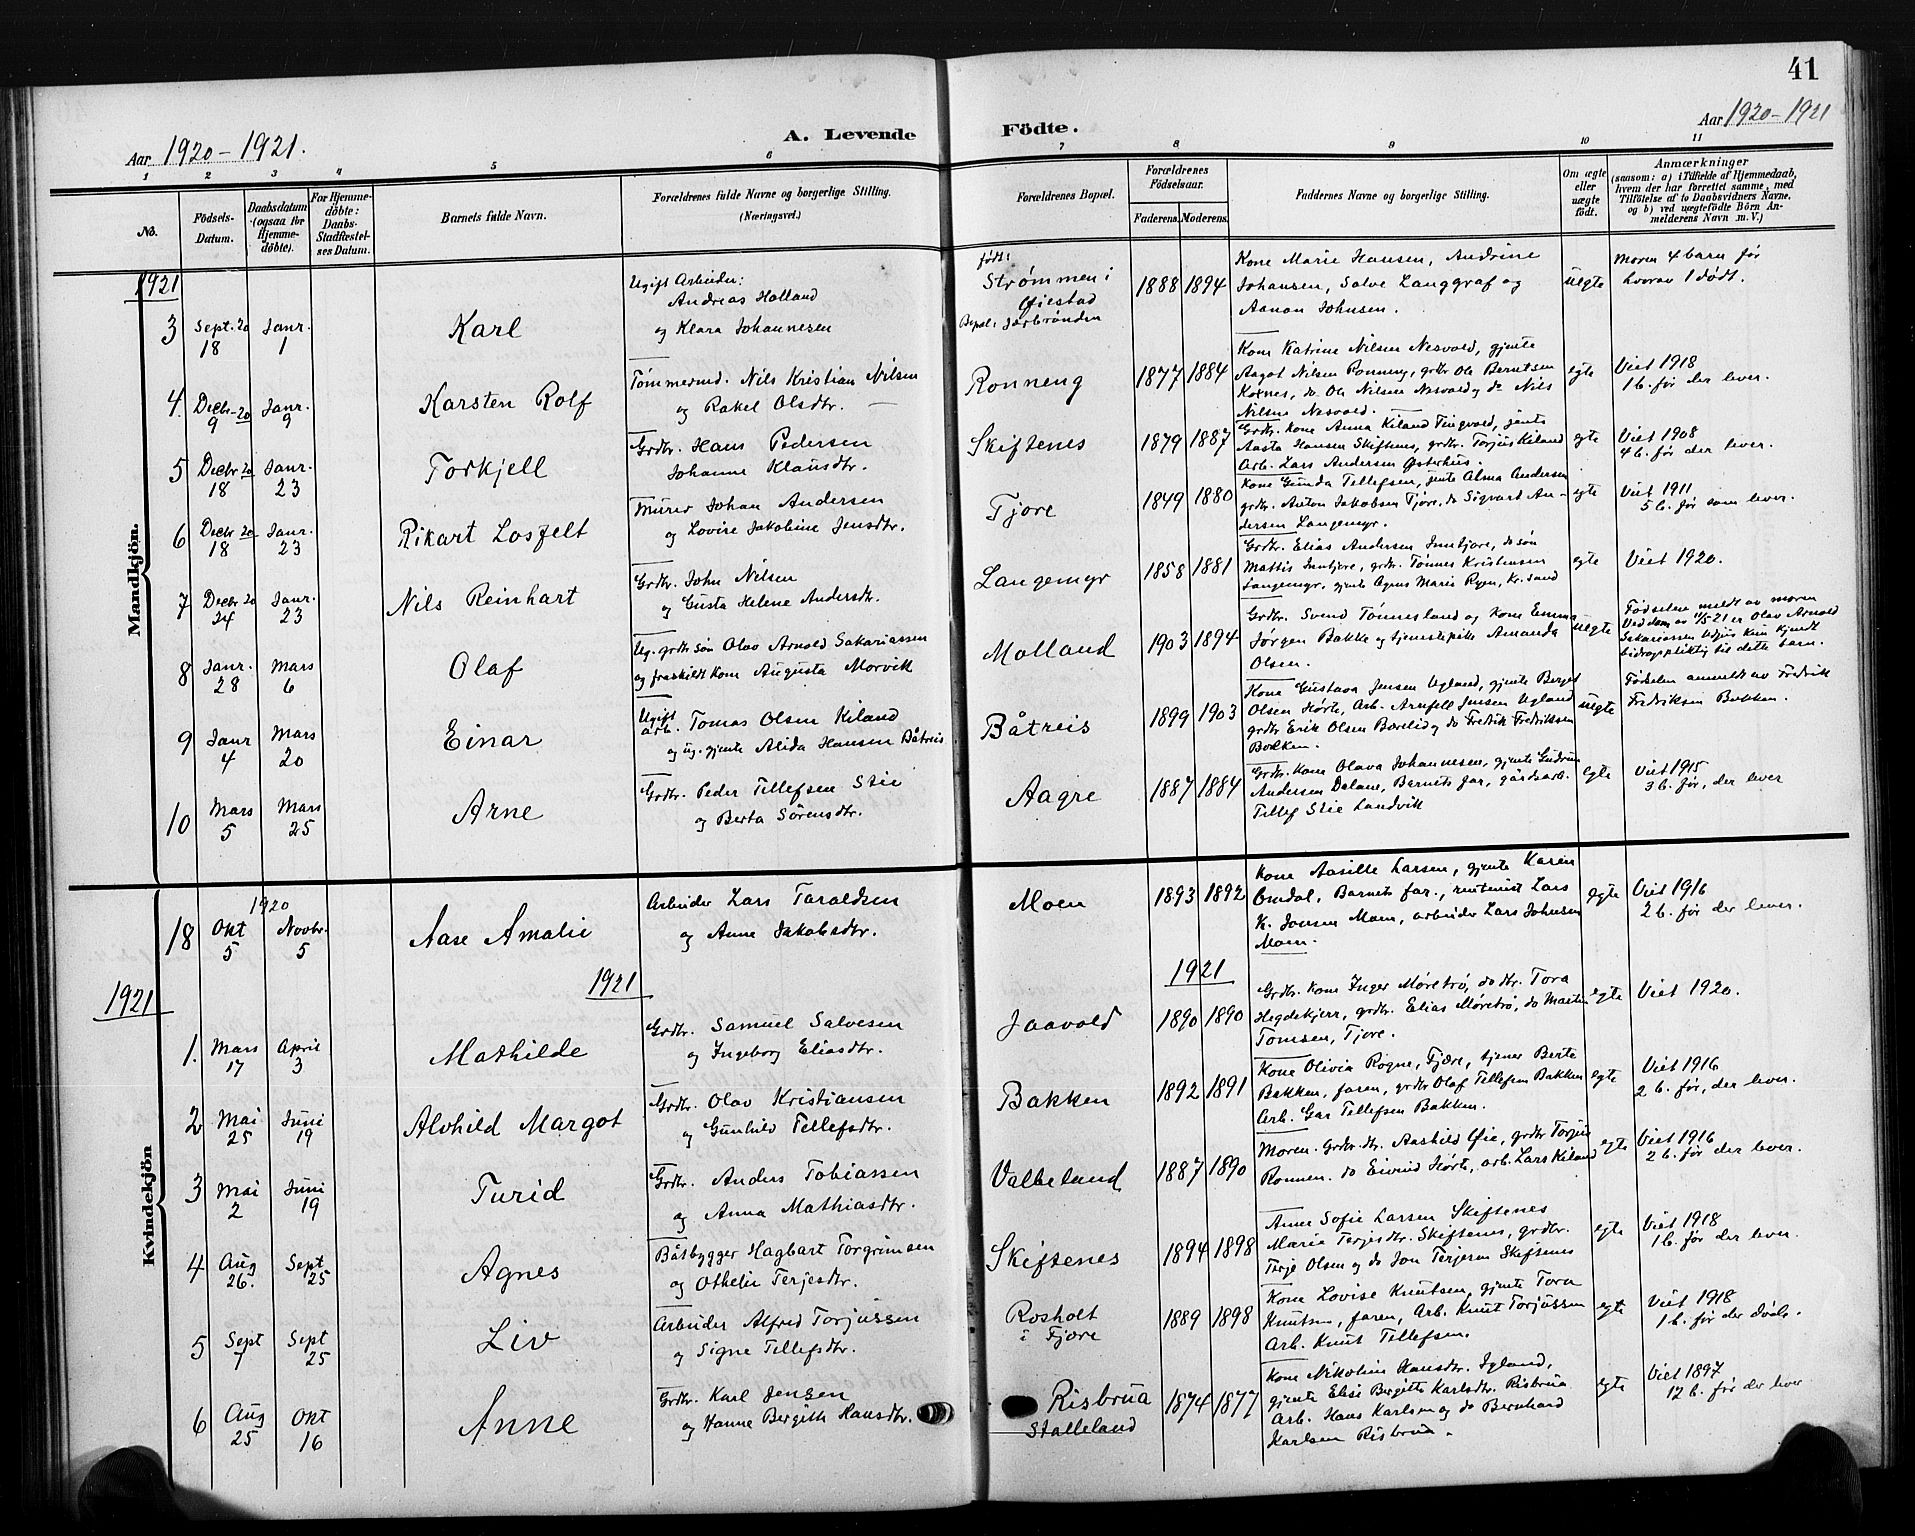 41
Aar 1920-1921.
A. Levende Födte.
Aar 1920-1921
1 2 3 4 5 6 7 8 9 10 11
No.
Födsels-Datum.
Daabsdatum (ogsaa for Hjemmedöbte).
For Hjemmedöbte: Daabs-Stadfæstelses Datum.
Barnets fulde Navn.
Forældrenes fulde Navne og borgerlige Stilling. (Næringsvei.)
Forældrenes Bopæl.
Forældrenes Födselsaar.
Faderens. Moderens.
Faddernes Navne og borgerlige Stilling.
Om ægte eller uægte födt.
Anmærkninger
(saasom: a) i Tilfælde af Hjemmedaab, hvem der har forrettet samme, med Tilföielse af to Daabsvidners Navne, og b) ved uægtefödte Börn Anmelderens Navn m. V.)
Mandkjön.
1921
3 Sept. 20 18 Janr. 1 Karl
Ugift Arbeider:
Andreas Holland
og Klara Johannesen
født:
Strømmen i
Øiestad
Bopæl: Jortrønden
1888 1894
Kone Marie Hansen, Andrine
Johansen, Salve Langgraf og
Aanon Johnsen.
uegte
Moren 4 barn før
hvorav 1 dødt.
4. Decbr. 20 9 Janr. 9 Karsten Rolf
Tømmermd. Nils Kristian Nilsen
og Rakel Olsdtr.
Ronneng
1877 1884
Kone Katrine Nilsen Nesvold, gjente
Aagot Nilsen Ronneng, grdbr Ole Berntsen
Kornes, do. Ole Nilsen Nesvold og do Nils
Nilsen Nesvold.
egte
Viet 1918
1 b. før der lever.
5 Decbr 20 18 Janr. 23 Torkjell
Grdbr. Hans Pedersen
Johanne Klausdtr.
Skiftenes
1879 1887
Grdbr. kone Anna Kiland Tingvold, gjente
Aasta Hansen Skiftenes, grdbr. Torjus Kiland
Arb. Lars Andersen Østerhus.
egte
Viet 1908
4 b. før der lever.
6 Decbr 20 18 Janr. 23 Rikart Losfelt
Murer Johan Andersen
og Lovise Jakobine Jensdtr.
Tjore
1849 1880
Kone Gunda Tellefsen, gjente Alma Andersen
grdbr. Anton Jakobsen Tjore, do Sigvart An-
dersen Langemyr.
egte
Viet 1911
5 b. før som lever.
7 Decbr 20 24 Janr. 23 Nils Reinhart
Grdbr. John Nilsen
og Gusta Helene Andersdtr.
Langemyr
1858 1881
Grdbr. Elias Andersen Inntjore, do søn
Mattis Inntjore, grdbr. Tønnes Kristensen
Langemyr, gjente Agnes Marie Ryen, Kr. sand
egte
Viet 1920.
8 Janr. 28 Mars 6 Olaf
Ug. grdbr søn Olav Arnold Sakariassen
og fraskildt kone Augusta Morvik
Molland
1903 1894
Grdbr. Svend Tønnesland og kone Emma
Jørgen Bakke og tjenestepike Amanda
Olsen.
uegte
Fødselen meldt av moren
Ved dom av 11/5-21 er Olav Arnold
Sakariassen Udjus kun kjendt
bidragspliktig til dette barn.
9 Janr 4 Mars 20 Einar
Ugift
arb. Tomas Olsen Kiland
og ug. gjente Alida Hansen Båtreis
Båtreis
1899 1903
Kone Gustava Jensen Ugland, gjente Berget
Olsen Hørte, Arb. Arnfell Jensen Ugland
grdbr Erik Olsen Borelid og do Fredrik Fredriksen
Bakken.
uegte
Fødselen anmeldt av Fredrik
Fredriksen Bakken.
10 Mars 5 Mars 25 Arne
Grdbr. Peder Tellefsen Stie
og Berta Sørensdtr.
Aagre
1887 1884
Grdbr. kone Olava Johannesen, gjente Gudrun
Andersen Dalane, Barnets far, gårdsarb.
Tellef Stie Landvik
egte
Viet 1915
3 b. før, der lever
Kvindekjön
1920
18 Okt 5 Novbr. 5 Aase Amalie
Arbeider Lars Taraldsen
og Anne Jakobsdtr.
Moen
1893 1892
Kone Aasille Larsen, gjente Karen
Omdal, Barnets far., rentenist Lars
K. Jonsen Moen, arbeider Lars Johnsen
Moen.
egte
Viet 1916
2 b. før der lever.
1921
1921
1921
1. Mars 17 April 3 Mathilde
Grdbr. Samuel Salvesen
og Ingeborg Eliasdtr.
Jaavold
1890 1890
Grdbr. kone Inger Møretrø, do dtr. Tora
Hegdekjerr, grdbr. Elias Møretrø, do Martin
Tomsen, Tjore.
egte
Viet 1920.
2 Mai 25 Juni 19 Alvhild Margot
Grdbr. Olav Kristiansen
og Gunhild Tellefsdtr.
Bakken
1892 1891
Kone Olivia Rogne, Fjære, tjener Berte
Bakken, faren, grdbr Olaf Tellefsen Bakken
Arb. Gar Tellefsen Bakken.
egte
Viet 1916
2 b. før, der lever.
3 Mai 2 Juni 19 Turid
Grdbr. Anders Tobiassen
og Anna Mathiasdtr.
Valbeland
1887 1890
Moren. Grdbr. dtr. Aashild Øie, grdbr Torjus
Ronnen. do Eivind Hørte, arb. Lars Kiland
egte
Viet 1916
2 b. før der lever.
4 Aug 26. Sept 25 Agnes
Båtbygger Hagbart Torgrimsen
og Othelie Terjesdtr.
Skiftenes
1894 1898
Anne Sofie Larsen Skiftenes
Marie Terjesdtr. Skiftenes, grdbr.
Terje Olsen og do Jon Terjesen Skiftenes
egte
Viet 1918
1 b. før der lever.
5 Sept 7 Sept 25 Liv
Arbeider Alfred Torjussen
og Signe Tellefsdtr.
Rosholt
i Fjære
1889 1898
Kone Lovise Knutsen, gjente Tora
Knutsen, faren, Arb. Knut Torjussen
Arb. Knut Tellefsen.
egte
Viet 1918
1 b. før der døde.
6 Aug 25 Okt 16 Anne
Grdbr. Karl Jensen
og Hanne Bergitte Hansdtr.
Risbrua
Stalleland
1874 1877
Kone Nikoline Hansdtr. Igland,
gjente Elise Bergitte Karlsdtr. Risbrua
Arb. Hans Karlsen og do Bernhard
Karlsen Risbrua.
egte
Viet 1897
12 b. før der lever